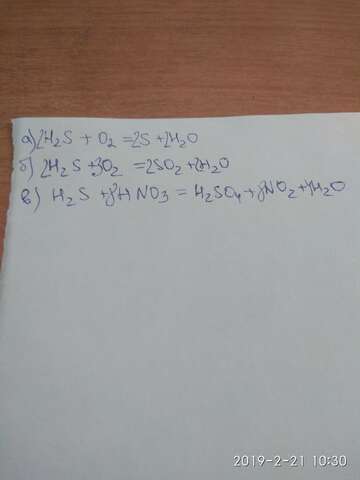 а) 2H2S + O2 = 2S + 2H2O
б) 2H2S + 3O2 = 2SO2 + 2H2O
в) H2S + 8HNO3 = H2SO4 + 8NO2 + 4H2O
2019-2-21 10:30